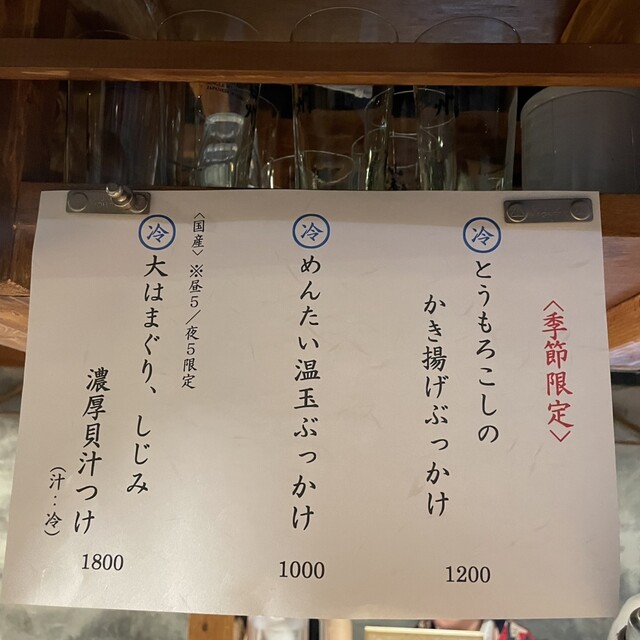 〈季節限定〉
冷 とうもろこしの
かき揚げぶっかけ
1200
冷 めんたい温玉ぶっかけ
1000
〈国産〉※昼5/夜5限定
冷 大はまぐり、しじみ
濃厚貝汁つけ
(汁:冷)
1800